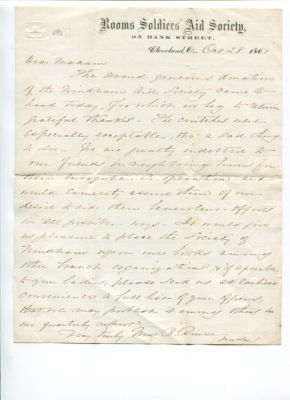 Rooms Soldiers' Aid Society,
95 BANK STREET,
Cleveland, O., Oct 28 1861
Dear Madam
The second generous donation
of the Windham Aid Society came to
hand today, for which we beg to return
grateful thanks. The contents were
especially acceptable, tho' a sad thing
to see. We are greatly indebted to
our friends in neighboring towns for
their and
would earnestly of our
desire to aid their benevolent efforts
in all possible ways. It would give
us pleasure to place the Society of
Windham upon our books among
other branch organizations & if agreeable
to your ladies, please send us at earliest
convenience a full list of your officers,
that we may publish it among others in
our quarterly report.
Very truly Mrs B. Rouse